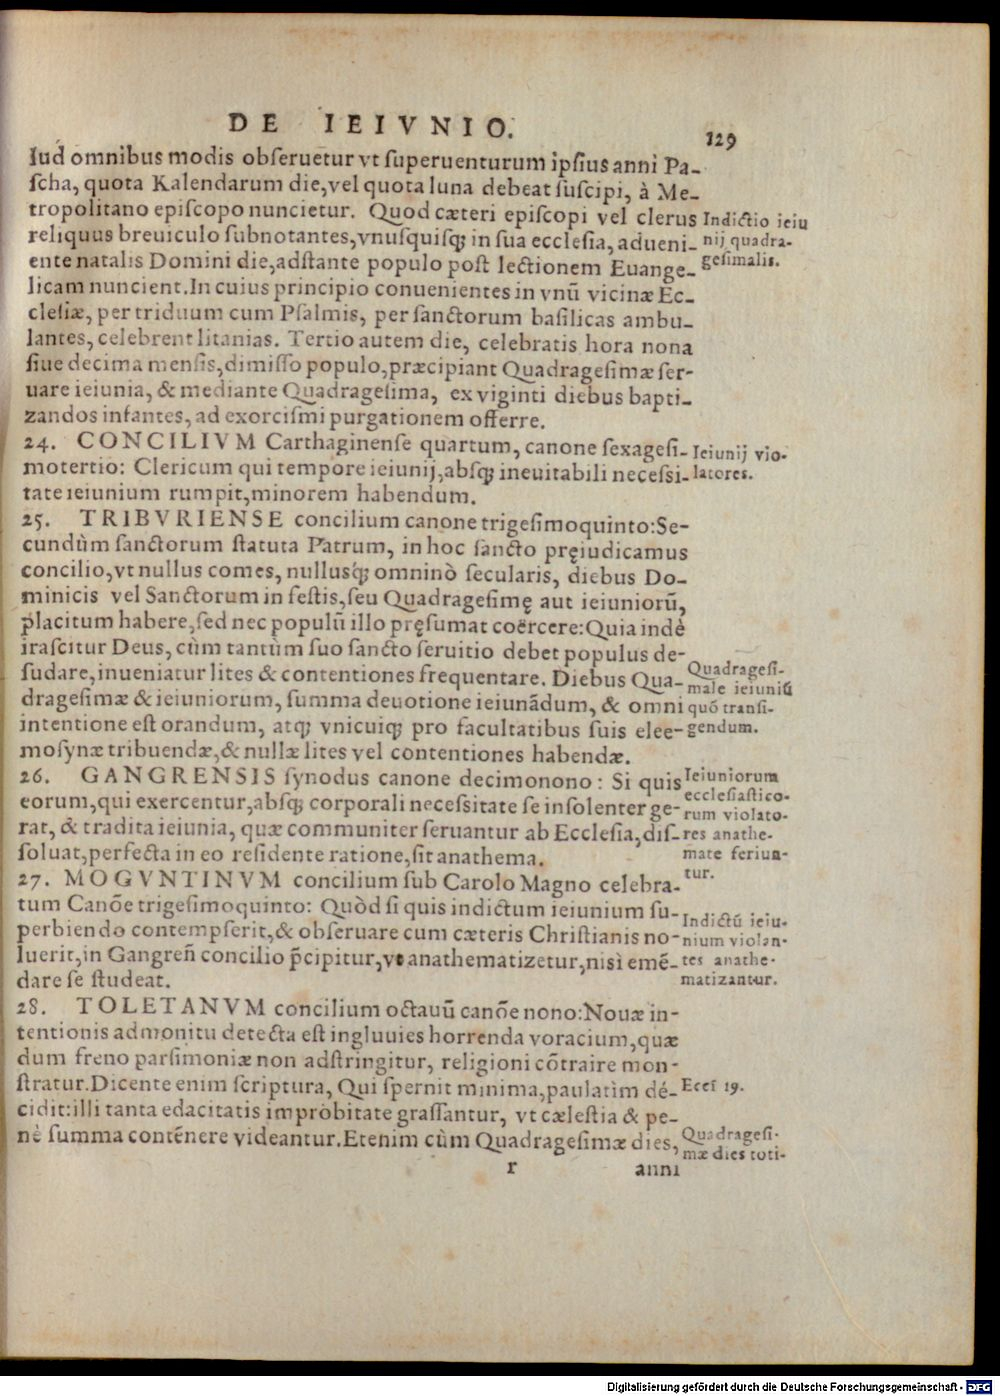 DE IEIVNIO.
129
lud omnibus modis obſeruetur vt ſuperuenturum ipſius anni Pa-
ſcha, quota Kalendarum die, vel quota luna debeat ſuſcipi, à Me-
tropolitano epiſcopo nuncietur. Quod cæteri epiſcopi vel clerus
reliquus breuiculo ſubnotantes, vnuſquiſq; in ſua eccleſia, adueni-
ente natalis Domini die, adſtante populo poſt lectionem Euange-
licam nuncient. In cuius principio conuenientes in vnū vicinæ Ec-
cleſiæ, per triduum cum Pſalmis, per ſanctorum baſilicas ambu-
lantes, celebrent litanias. Tertio autem die, celebratis hora nona
ſiue decima menſis, dimiſſo populo, præcipiant Quadrageſimæ ſer-
uare ieiunia, & mediante Quadrageſima, ex viginti diebus bapti-
zandos infantes, ad exorciſmi purgationem offerre.
Indictio ieiu
nij quadra-
geſimalis.
24. CONCILIVM Carthaginenſe quartum, canone ſexageſi-
motertio: Clericum qui tempore ieiunij, abſq; ineuitabili neceſſi-
tate ieiunium rumpit, minorem habendum.
Ieiunij vio-
latores.
25. TRIBVRIENSE concilium canone trigeſimoquinto: Se-
cundùm ſanctorum ſtatuta Patrum, in hoc ſancto pręiudicamus
concilio, vt nullus comes, nullusq́; omninò ſecularis, diebus Do-
minicis vel Sanctorum in feſtis, ſeu Quadrageſimę aut ieiuniorū,
placitum habere, ſed nec populū illo pręſumat coërcere: Quia indè
iraſcitur Deus, cùm tantùm ſuo ſancto ſeruitio debet populus de-
ſudare, inueniatur lites & contentiones frequentare. Diebus Qua-
drageſimæ & ieiuniorum, ſumma deuotione ieiunādum, & omni
intentione eſt orandum, atq; vnicuiq; pro facultatibus ſuis elee-
moſynæ tribuendæ, & nullæ lites vel contentiones habendæ.
Quadrageſi-
male ieiuniū
quō tranſi-
gendum.
26. GANGRENSIS ſynodus canone decimonono: Si quis
eorum, qui exercentur, abſq; corporali neceſſitate ſe inſolenter ge-
rat, & tradita ieiunia, quæ communiter ſeruantur ab Eccleſia, diſ-
ſoluat, perfecta in eo reſidente ratione, ſit anathema.
Ieiuniorum
eccleſiaſtico-
rum violato-
res anathe-
mate feriun-
tur.
27. MOGVNTINVM concilium ſub Carolo Magno celebra-
tum Canōe trigeſimoquinto: Quòd ſi quis indictum ieiunium ſu-
perbiendo contempſerit, & obſeruare cum cæteris Chriſtianis no-
luerit, in Gangreñ concilio p̄cipitur, vt anathematizetur, niſi emē-
dare ſe ſtudeat.
Indictū ieiu-
nium violan-
tes anathe-
matizantur.
28. TOLETANVM concilium octauū canōe nono: Nouæ in-
tentionis admonitu detecta eſt ingluuies horrenda voracium, quæ
dum freno parſimoniæ non adſtringitur, religioni cōtraire mon-
ſtratur. Dicente enim ſcriptura, Qui ſpernit minima, paulatìm dé-
cidit: illi tanta edacitatis impròbitate graſſantur, vt cæleſtia & pe-
nè ſumma contēnere videantur. Etenim cùm Quadrageſimæ dies,
Eccſ 19.
Quadrageſi-
mæ dies toti-
r
anni
Digitalisierung gefördert durch die Deutsche Forschungsgemeinschaft - DFG